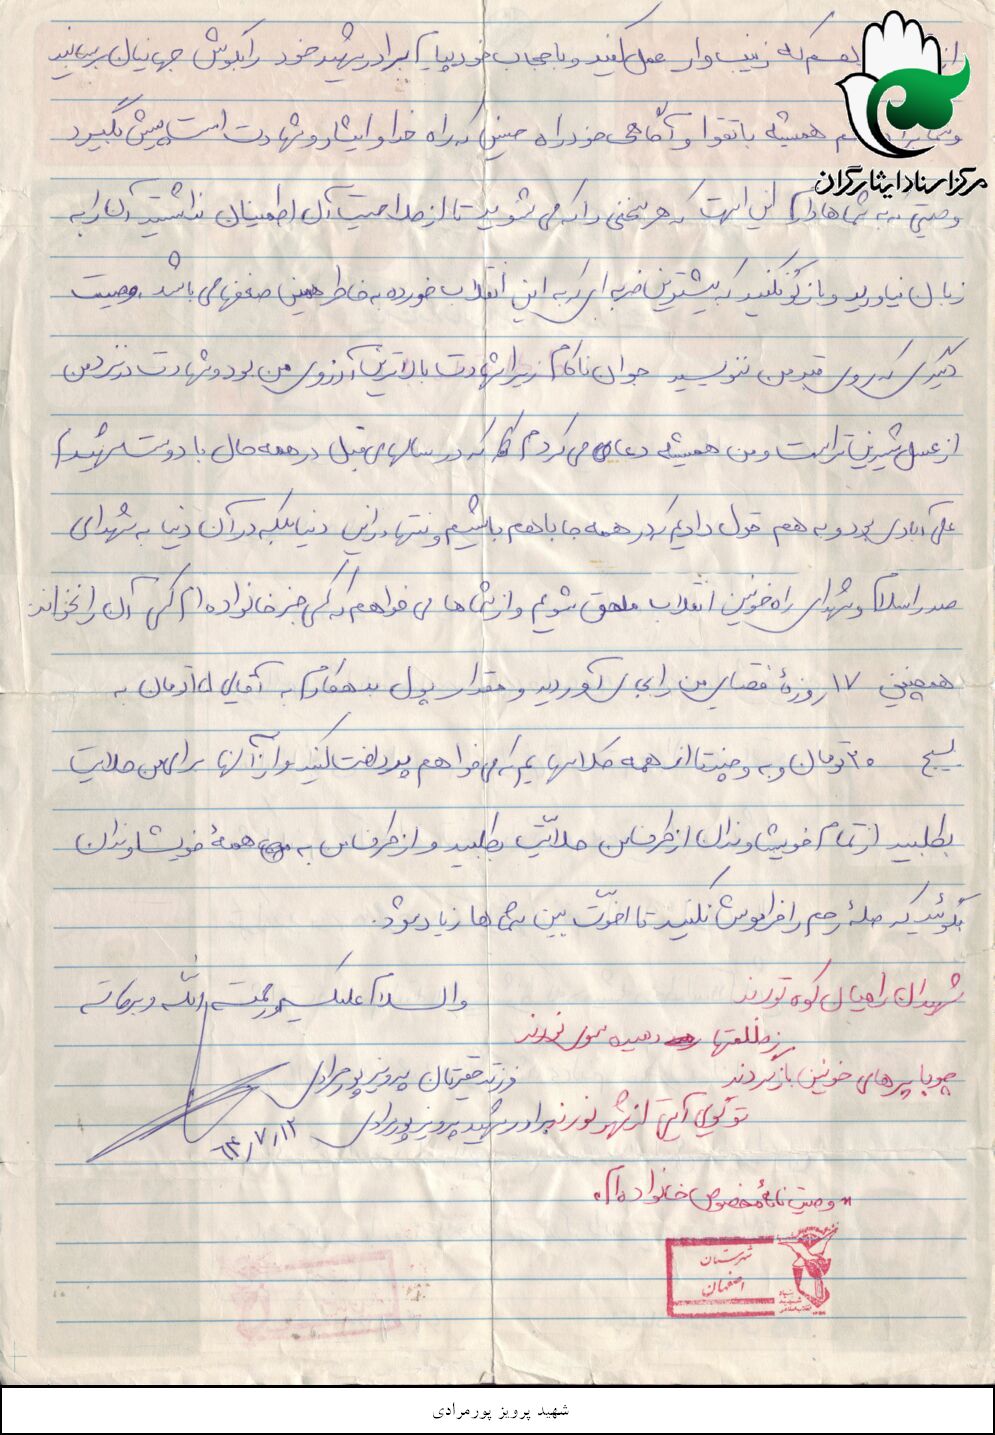 که زینب وار عمل کنید و با حجاب خود پیام برادر شهید خود را بگوش جهانیان برسانید
همیشه با تقوا و آگاهی خود راه حسین که راه خدا و ایثار و شهادت است پیش بگیرد
مرکز اسناد ایثارگران
وصیتی که به شماها دارم این است که هر سخنی را که می شنوید تا از صلاحیت آن اطمینان نداشتید آن را به
زبان نیاورید و بازگو نکنید که بیشترین ضربه ای که به این انقلاب خورده به خاطر همین ضعفها می باشد. وصیت
دیگری که روی قبر من ننویسید جوان ناکام زیرا شهادت بالاترین آرزوی من بود و شهادت در نزد من
از عسل شیرین تر است و من همیشه دعا می کردم که در سالهای قبل در همه حال با دوست شهیدم
علی آبادی بود و به هم قول دادیم که در همه جا با هم باشیم و نه تنها در این دنیا بلکه در آن دنیا به شهدای
صدر اسلام و شهدای راه خونین انقلاب ملحق شویم و از شما ها می خواهم که کسی جز خانواده ام کسی آن را نخواند
همچنین ۱۷ روزۀ قضای من را بجای آورید و مقدار پول بدهکارم به آقای به
بسیج ۲۰ تومان و به از همه می خواهم پرداخت کنید و از آنها برای من حلالیت
بطلبید از تمام خویشاوندان از طرف من حلالیت بطلبید و از طرف من به همۀ خویشاوندان
بگوئید که صلۀ رحم را فراموش نکنید تا اخوت بین شما ها زیاد شود.
والسلام علیکم و رحمت الله و برکاته
شهیدان راهیان کوه نورند
ز ظلمتها رهیده سوی نورند
چو با پرهای خونین بازگردند
تو گویی آیتی از شهر نورند
فرزند حقیرتان پرویز پورمرادی
برادر شهید پرویز پورمرادی
۶۴/۷/۱۲
"وصیت نامۀ مخصوص خانواده ام"
شهرستان
اصفهان
بنیاد
شهید
انقلاب اسلامی
شهید پرویز پورمرادی